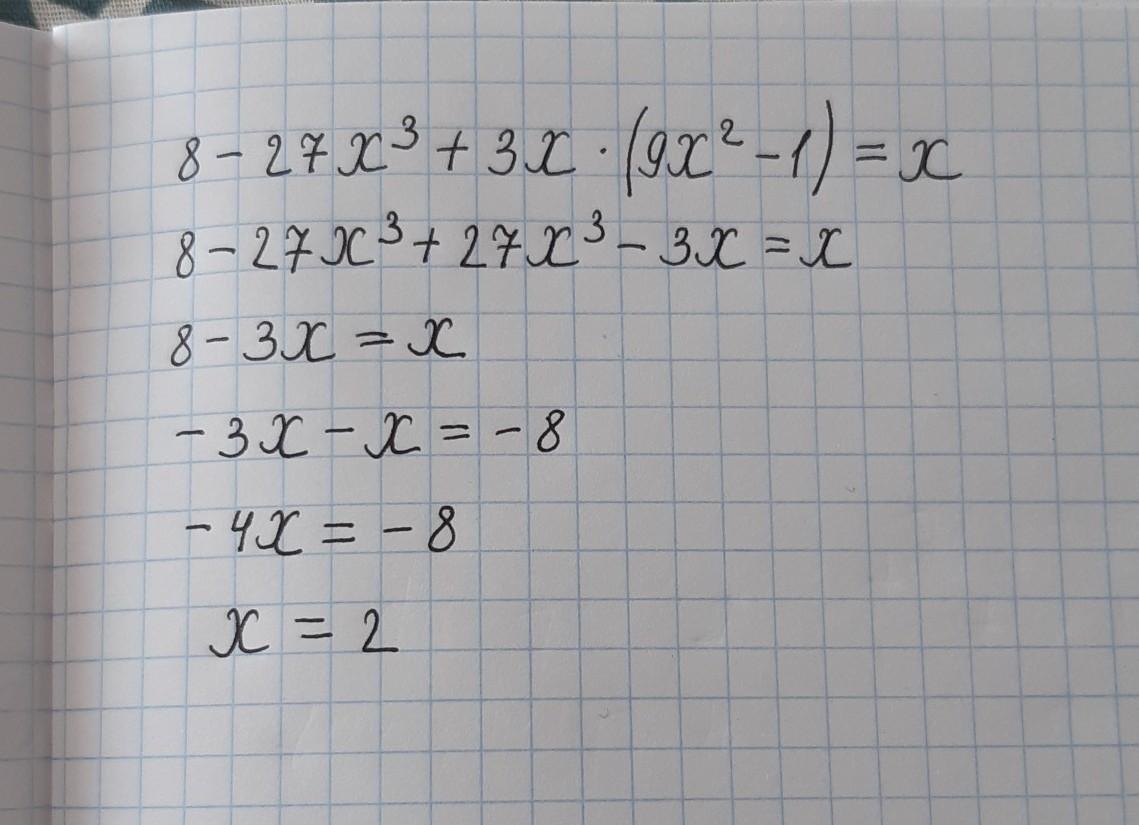 8 - 27x³ + 3x · (9x² - 1) = x
8 - 27x³ + 27x³ - 3x = x
8 - 3x = x
- 3x - x = - 8
- 4x = - 8
x = 2